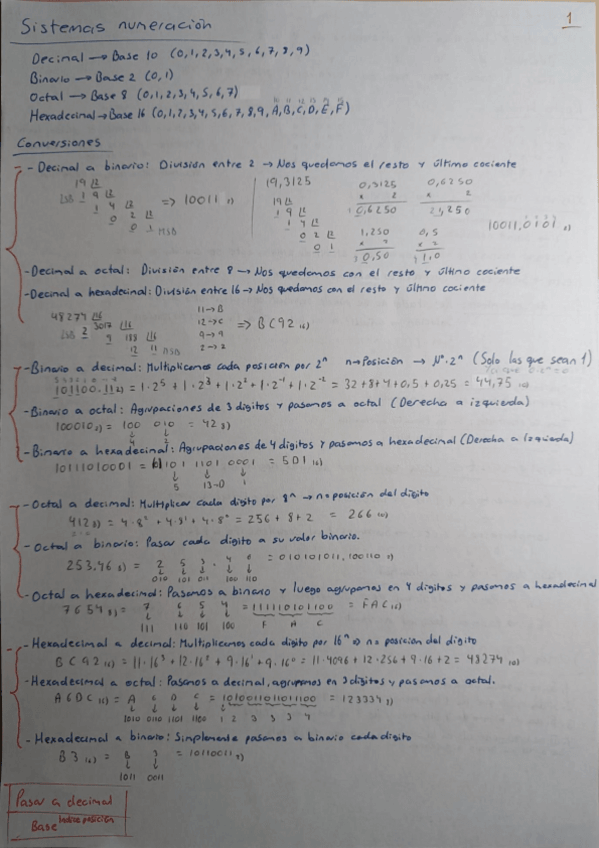 Sistemas numeración
1
Decimal → Base 10 (0,1,2,3,4,5,6,7,8,9)
Binario → Base 2 (0,1)
Octal → Base 8 (0,1,2,3,4,5,6,7)
Hexadecimal → Base 16 (0,1,2,3,4,5,6,7,8,9,A,B,C,D,E,F)
Conversiones
- Decimal a binario: División entre 2 → Nos quedamos el resto y último cociente
19 |2 19,3125 0,3125 0,6250
LSB 1 9 |2 => 10011 2) 19 |2 x 2 x 2
1 4 |2 1 9 |2 0,6250 1,250
0 2 |2 1 4 |2 1,250 0,5 10011,0101 2)
0 1 MSB 0 2 |2 x 2 x 2
0 1 0,50 1,0
- Decimal a octal: División entre 8 → Nos quedamos con el resto y último cociente
- Decimal a hexadecimal: División entre 16 → Nos quedamos con el resto y último cociente
48274 |16 11 → B
LSB 2 3017 |16 12 → C => BC92 16)
9 188 |16 9 → 9
12 11 MSB 2 → 2
- Binario a decimal: Multiplicamos cada posición por 2ⁿ n → Posición → Nº·2ⁿ (Solo las que sean 1)
101100.11 2) = 1·2⁵ + 1·2³ + 1·2² + 1·2⁻¹ + 1·2⁻² = 32+8+4+0,5+0,25 = 44,75 10)
- Binario a octal: Agrupaciones de 3 digitos y pasamos a octal (Derecha a izquierda)
100010 2) = 100 010 = 42 8)
4 2
- Binario a hexadecimal: Agrupaciones de 4 digitos y pasamos a hexadecimal (Derecha a izquierda)
10111010001 = 101 1101 0001 = 5D1 16)
5 13→D 1
- Octal a decimal: Multiplicar cada digito por 8ⁿ → n posición del digito
412 8) = 4·8² + 4·8¹ + 4·8⁰ = 256 + 8 + 2 = 266 10)
- Octal a binario: Pasar cada digito a su valor binario.
253.46 8) = 2 5 3 . 4 6 = 010101011,100110 2)
010 101 011 100 110
- Octal a hexadecimal: Pasamos a binario y luego agrupamos en 4 digitos y pasamos a hexadecimal
7654 8) = 7 6 5 4 = 111110101100 = FAC 16)
111 110 101 100 F A C
- Hexadecimal a decimal: Multiplicamos cada digito por 16ⁿ => n posición del digito
BC92 16) = 11·16³ + 12·16² + 9·16¹ + 9·16⁰ = 11·4096 + 12·256 + 9·16 + 2 = 48274 10)
- Hexadecimal a octal: Pasamos a decimal, agrupamos en 3 digitos y pasamos a octal.
A6DC 16) = A 6 D C = 1010011011011100 = 123334 8)
1010 0110 1101 1100 1 2 3 3 3 4
- Hexadecimal a binario: Simplemente pasamos a binario cada digito
B3 16) = B 3 = 10110011 2)
1011 0011
Pasar a decimal
Base índice posición